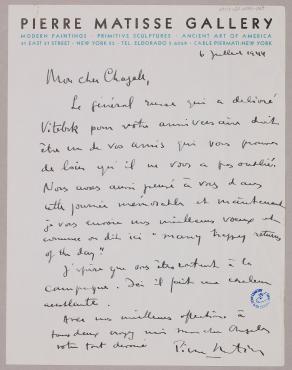 PIERRE MATISSE GALLERY
MODERN PAINTINGS · PRIMITIVE SCULPTURES · ANCIENT ART OF AMERICA
41 EAST 57 STREET · NEW YORK 22 · TEL. ELDORADO 5-6269 · CABLE PIERMATI·NEW YORK
6 Juillet 1944
Mon cher Chagall,
Le général russe qui a délivré
Vitebsk pour votre anniversaire doit
être un de vos amis qui vous prouve
de loin qu'il ne vous a pas oublié.
Nous avons aussi pensé à vous dans
cette journée mémorable et maintenant
je vous envoie nos meilleurs voeux et
comme on dit ici "many happy returns
of the day".
J'espère que vous êtes content à la
campagne. Ici il fait une chaleur
Avec nos meilleures affections à
tous deux croyez moi mon cher
votre tout dévoué Pierre Matisse